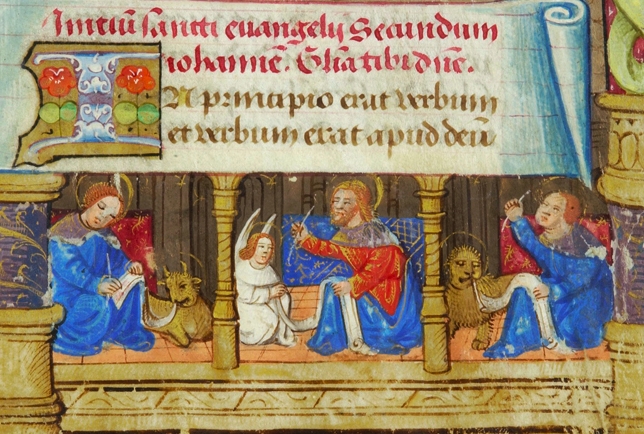 Initiū sancti euangely Secundum
iohannē. Glīa tibi dn̄e.
IN principio erat verbum
et verbum erat apud deū